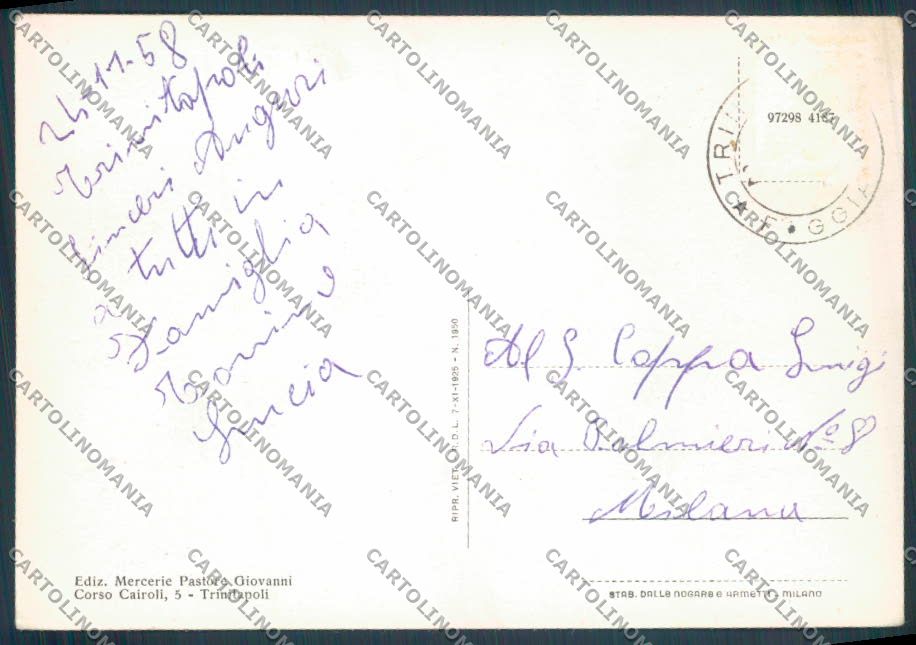 24-11-58
Trinitapoli
Sinceri Auguri
a tutti in
Famiglia
e
Lucia
97298 418
TRI
FOGGIA
Al S. Coppa Luigi
Via Palmieri Nº 8
Milano
RIPR. VIET. R.D.L. 7-XI-1925 - N. 1950
Ediz. Mercerie Pastore Giovanni
Corso Cairoli, 5 - Trinitapoli
STAB. DALLE NOGARE e ARMETTI - MILANO
CARTOLINOMANIA